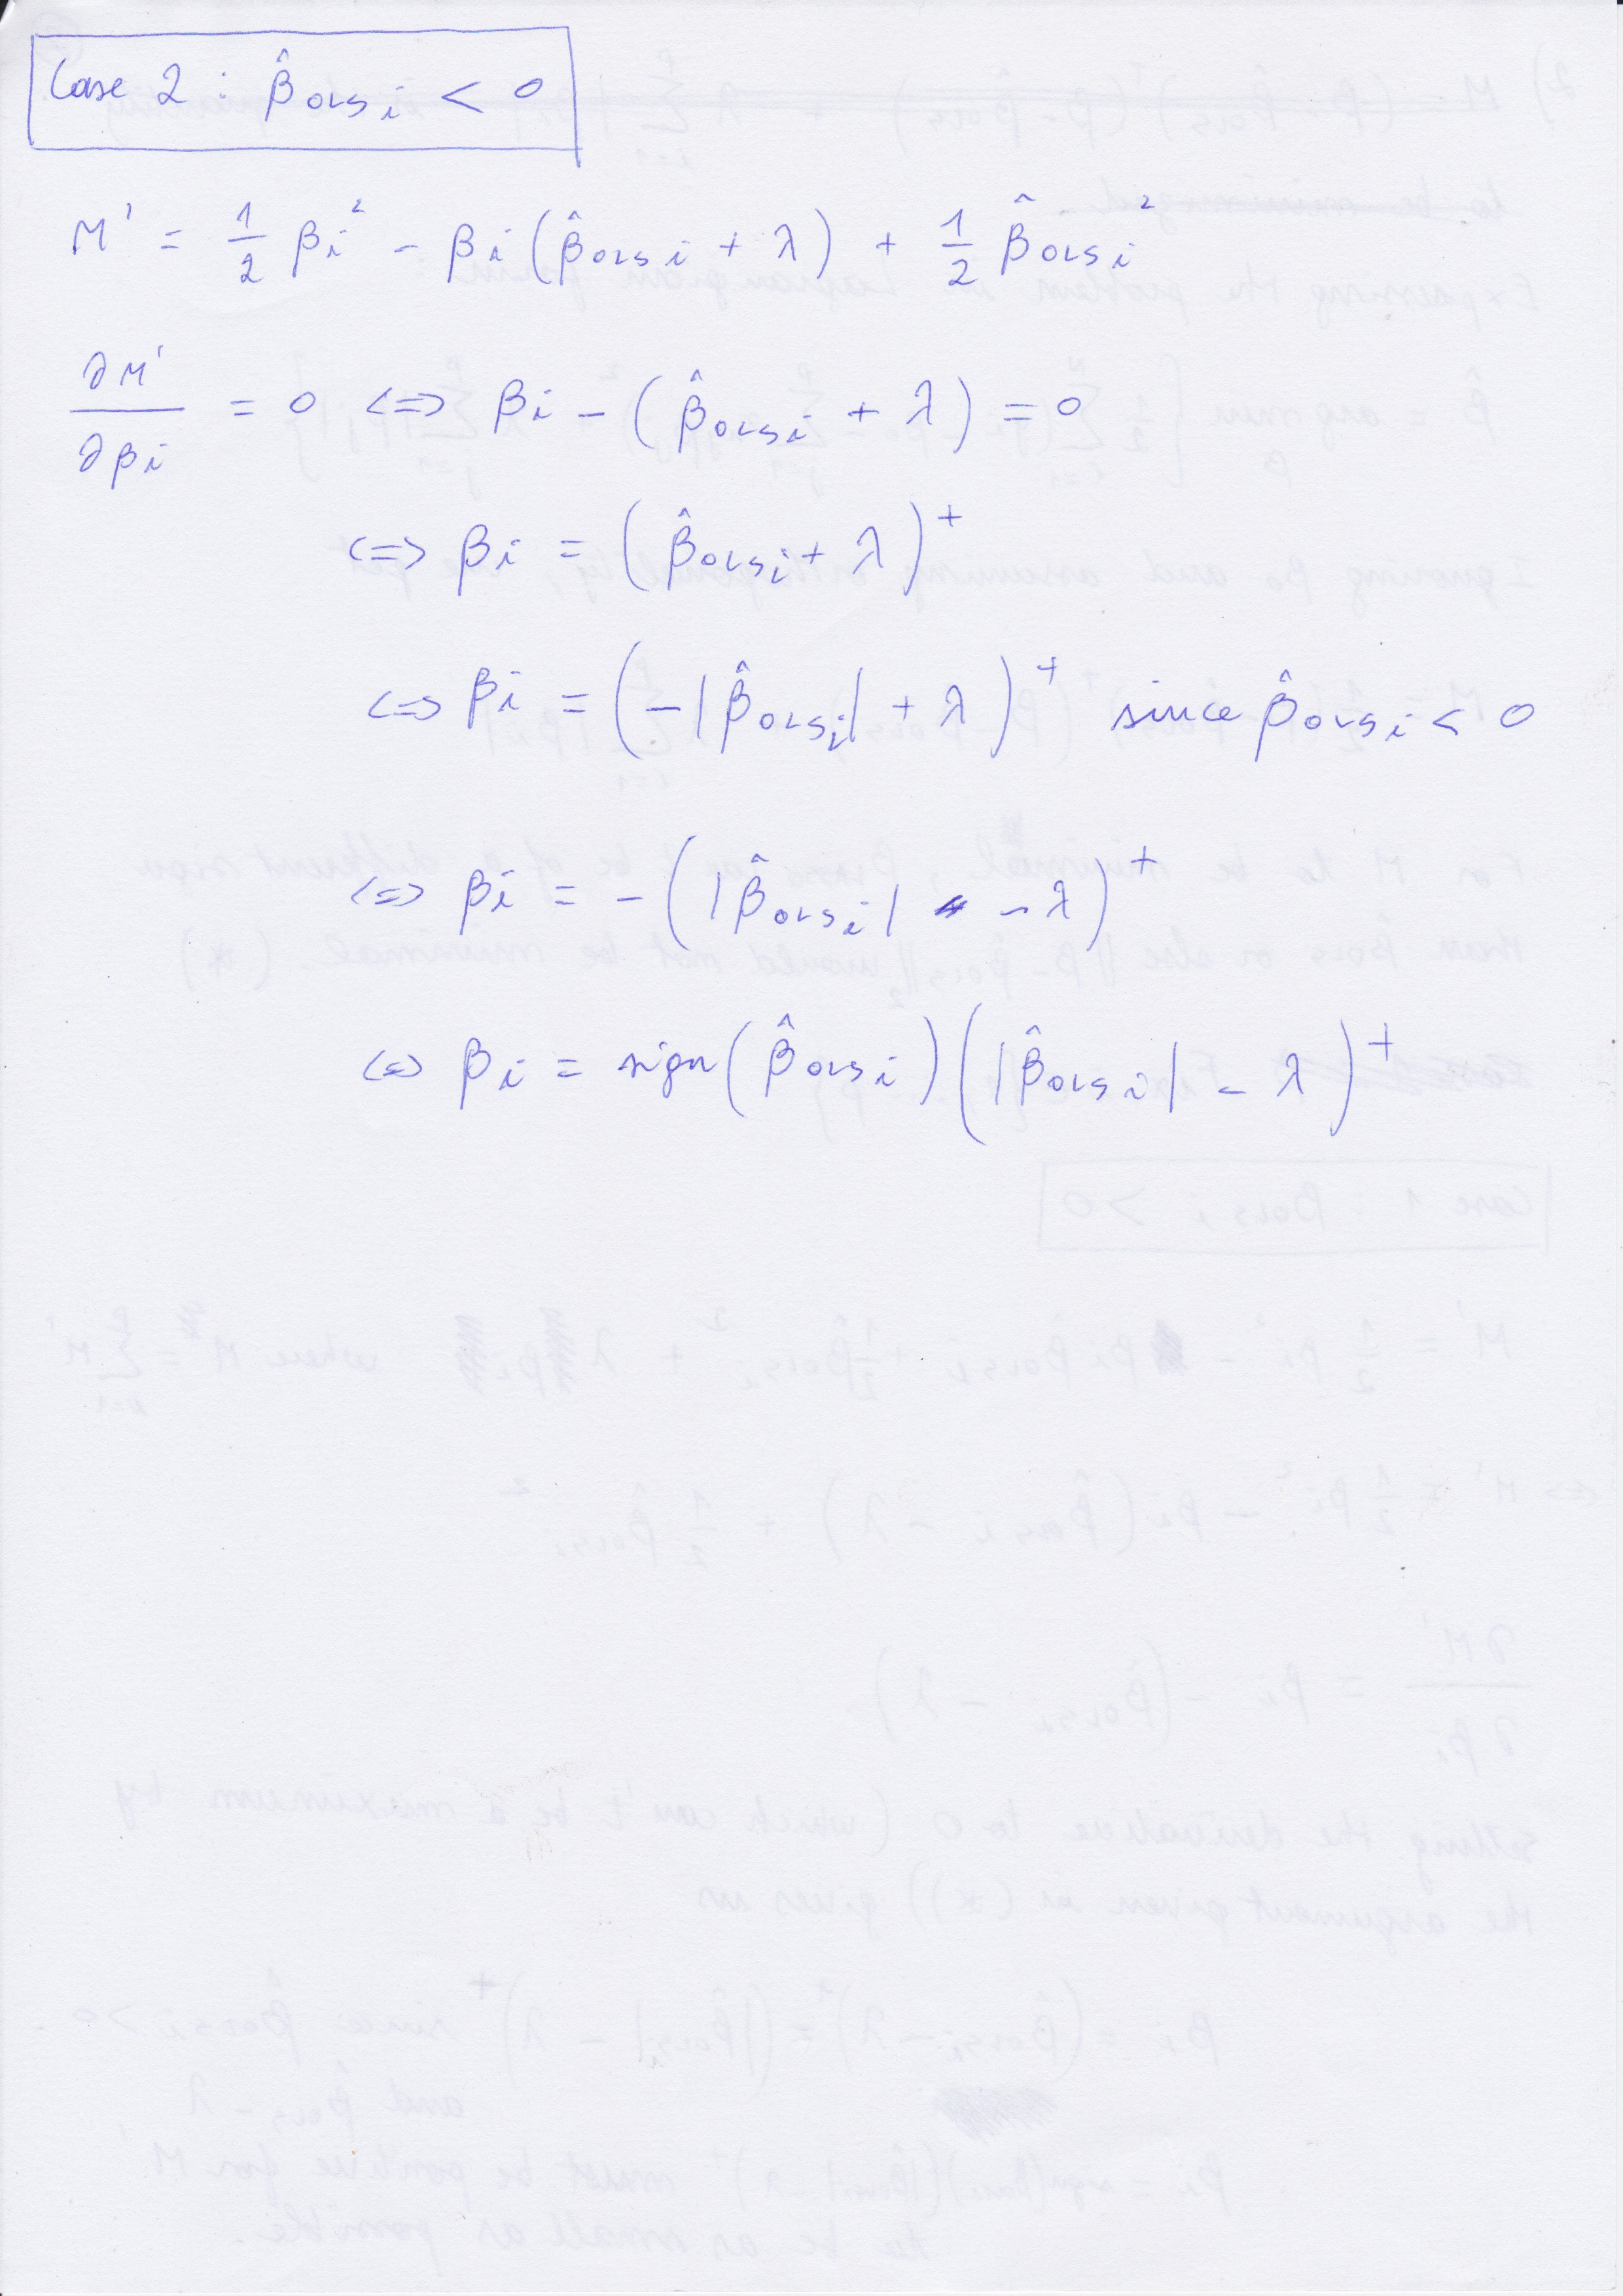 Case 2 : β̂OLS i < 0
M' = 1/2 βi² - βi (β̂OLS i + λ) + 1/2 β̂OLS i²
∂M'/∂βi = 0 <=> βi - (β̂OLS i + λ) = 0
<=> βi = (β̂OLS i + λ)⁺
<=> βi = (-|β̂OLS i| + λ)⁺ since β̂OLS i < 0
<=> βi = -(|β̂OLS i| - λ)⁺
<=> βi = sign(β̂OLS i)(|β̂OLS i| - λ)⁺